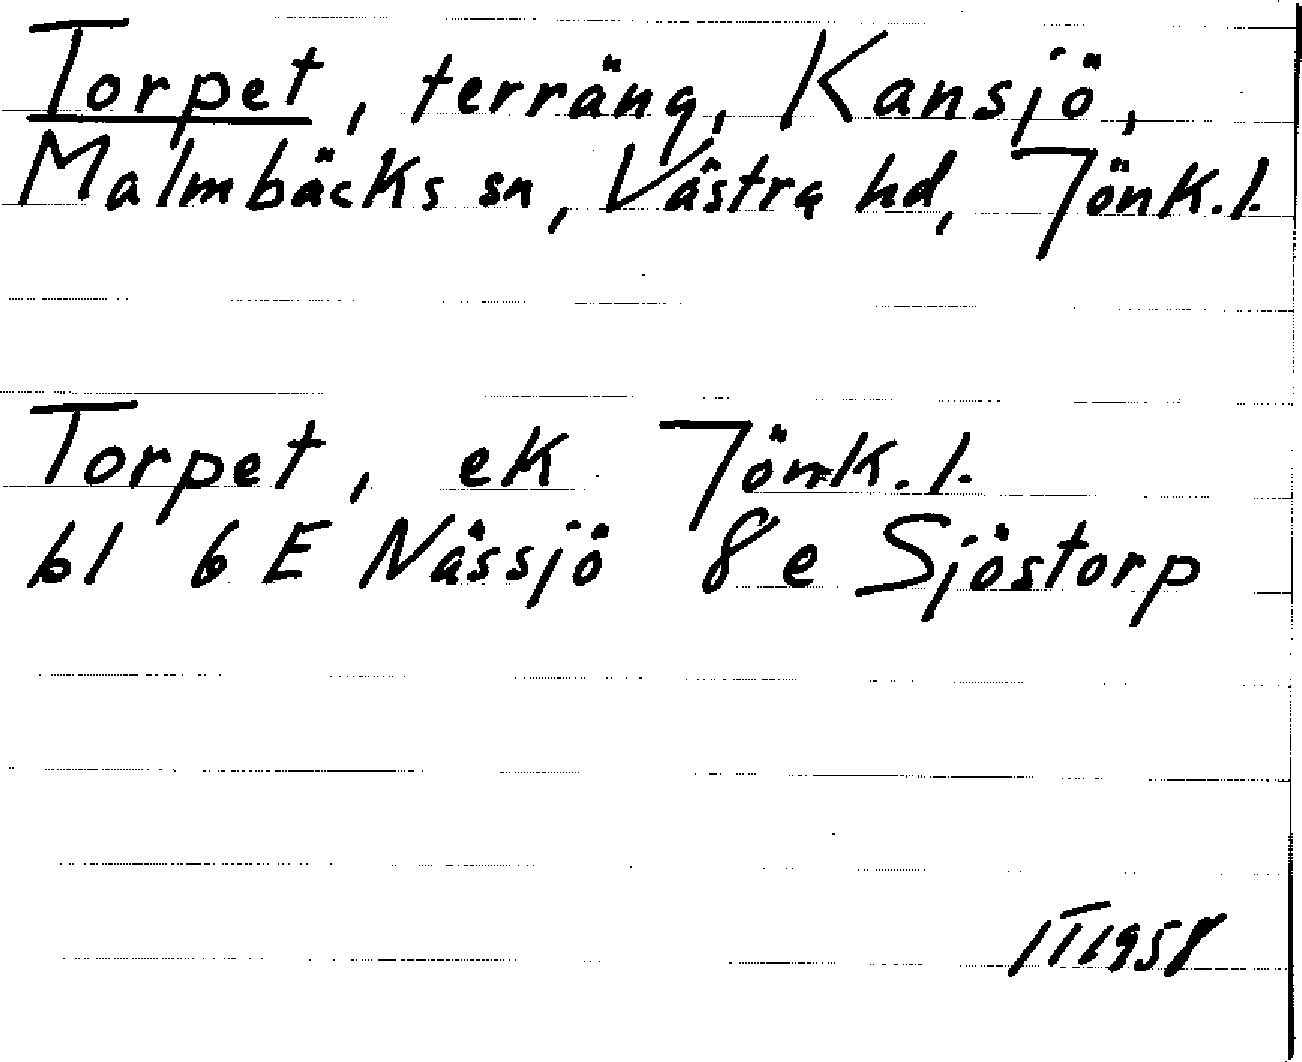 Torpet, terräng, Kansjö,
Malmbäcks sn, Västra hd, Jönk.l.
Torpet, ek Jönk.l.
bl 6 E Nässjö 8 e Sjöstorp
1958